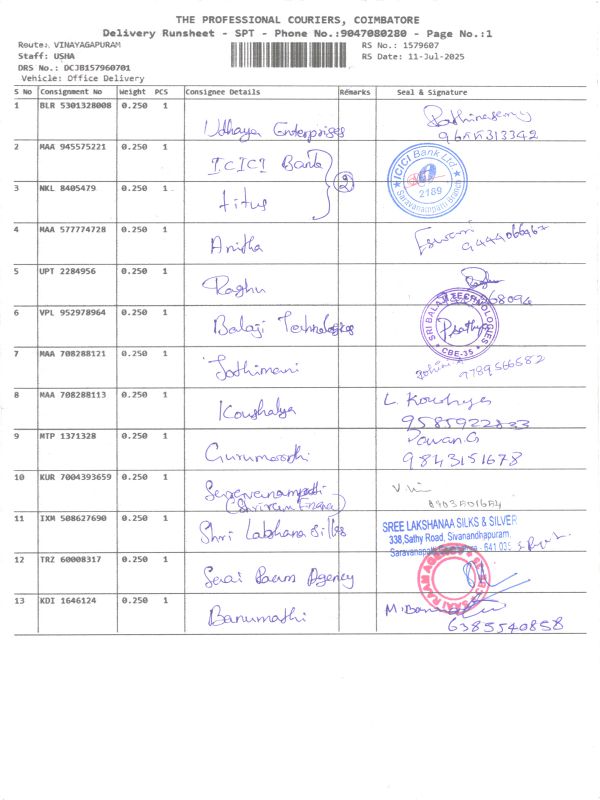 THE PROFESSIONAL COURIERS, COIMBATORE
Delivery Runsheet - SPT - Phone No.:9047080280 - Page No.:1
Route: VINAYAGAPURAM
RS No.: 1579607
Staff: USHA
RS Date: 11-Jul-2025
DRS No.: DCJB157960701
Vehicle: Office Delivery
S No Consignment No Weight PCS Consignee Details Remarks Seal & Signature
1 BLR 5301328008 0.250 1 Udhaya Enterprises
9655313342
2 MAA 945575221 0.250 1 ICICI Bank
ICICI Bank Ltd
2189
Saravanampatti Branch
3 NKL 8405479 0.250 1 titus
2
4 MAA 577774728 0.250 1 Anitha Eswari
5 UPT 2284956 0.250 1 Raghu Raghu
68094
6 VPL 952978964 0.250 1 Balaji Technologies
SRI BALAJI TECHNOLOGIES
CBE-35
7 MAA 708288121 0.250 1 Jothimani
9789566582
8 MAA 708288113 0.250 1 Koushalya L. Koushya
9585922833
9 MTP 1371328 0.250 1 Gurumoorthi Pavan G
9843151678
10 KUR 7004393659 0.250 1 Saravanampatti
(Shriram Finance)
11 IXM 508627690 0.250 1 Shri Lakshana Silks
SREE LAKSHANAA SILKS & SILVER
338,Sathy Road, Sivanandhapuram,
641 035
12 TRZ 60008317 0.250 1 Serai Raam Agency
13 KDI 1646124 0.250 1 Banumathi
6385540858